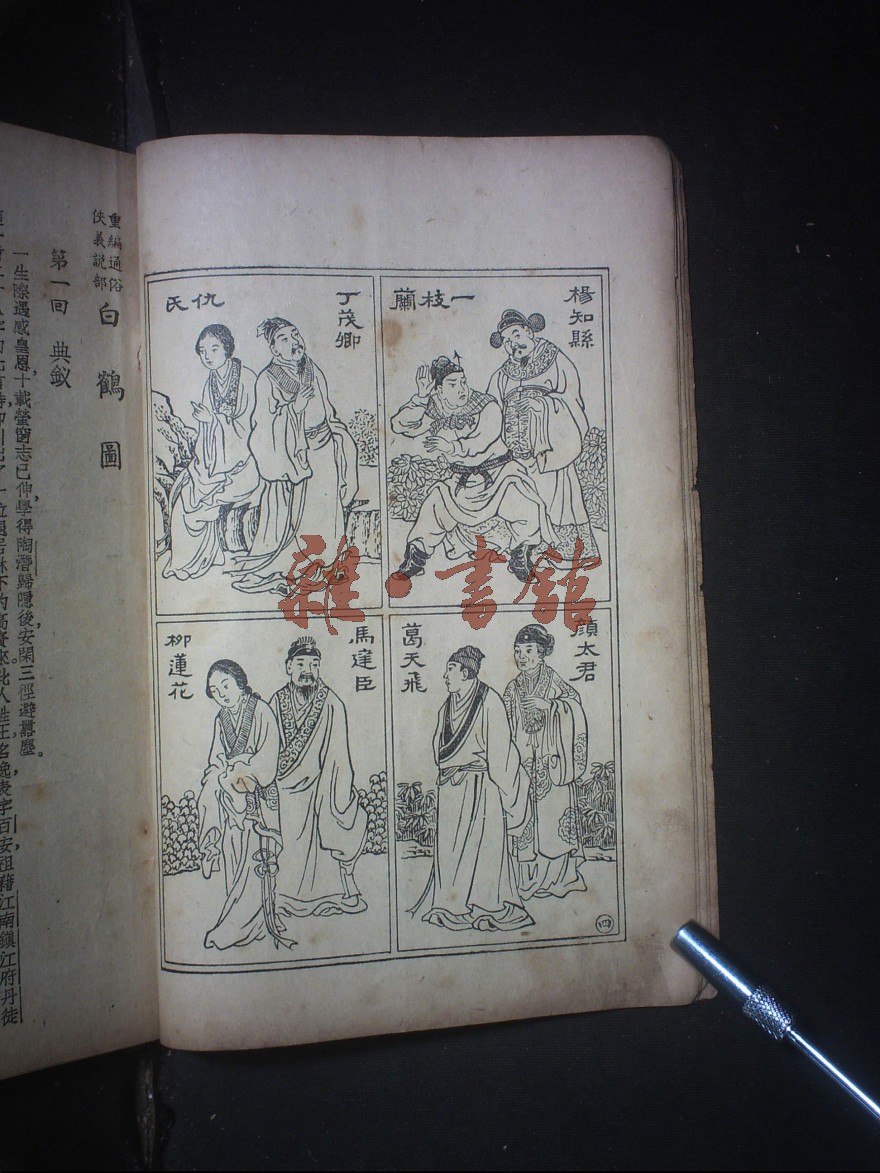 楊知縣
一枝蘭
丁茂卿
仇氏
顏太君
葛天飛
馬達臣
柳蓮花
四
重編通俗
俠義說部
白鶴圖
第一回 典釵
一生際遇感皇恩，十載螢窗志已伸，學得陶潛歸隱後，安閑三徑避囂塵。
此人姓王名逸表字百安，祖籍江南鎮江府丹徒
雜·書館